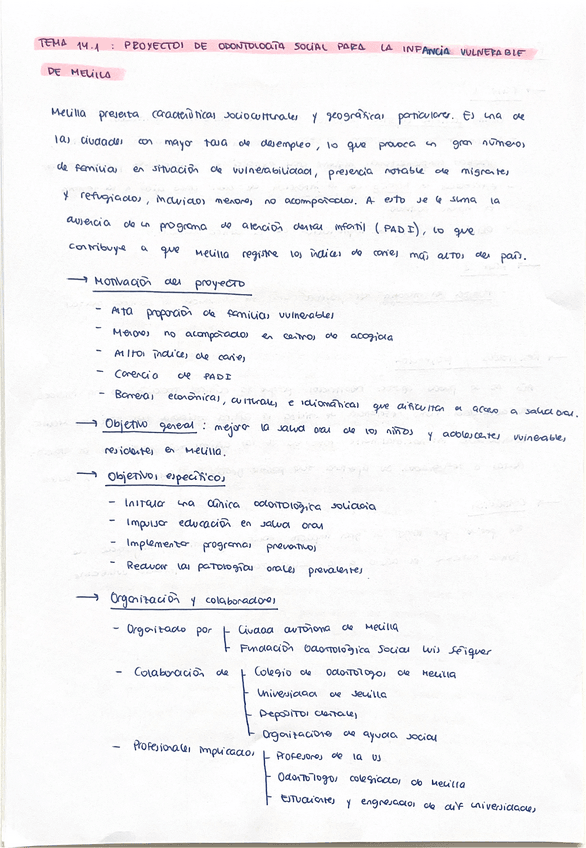 TEMA 14.1 : PROYECTOS DE ODONTOLOGÍA SOCIAL PARA LA INFANCIA VULNERABLE
DE MELILLA
Melilla presenta características socioculturales y geográficas particulares. Es una de
las ciudades con mayor tasa de desempleo, lo que provoca un gran números
de familias en situación de vulnerabilidad, presencia notable de migrantes
y refugiados, incluidos menores no acompañados. A esto se le suma la
ausencia de un programa de atención dental infantil (PADI), lo que
contribuye a que Melilla registre los índices de caries más altos del país.
→ Motivación del proyecto
- Alta proporción de familias vulnerables
- Menores no acompañados en centros de acogida
- Altos índices de caries
- Carencia de PADI
- Barreras económicas, culturales e idiomáticas que dificultan el acceso a salud oral.
→ Objetivo general : mejorar la salud oral de los niños y adolescentes vulnerables
residentes en Melilla.
→ Objetivos específicos
- Instalar una clínica odontológica solidaria
- Impulsar educación en salud oral
- Implementar programas preventivos
- Reducir las patologías orales prevalentes
→ Organización y colaboradores
- Organizado por
Ciudad autónoma de Melilla
Fundación Odontológica Social Luis Séiquer
- Colaboración de
Colegio de Odontólogos de Melilla
Universidad de Sevilla
Depósitos dentales
Organizaciones de ayuda social
- Profesionales implicados
Profesores de la US
Odontólogos colegiados de Melilla
Estudiantes y egresados de dif universidades